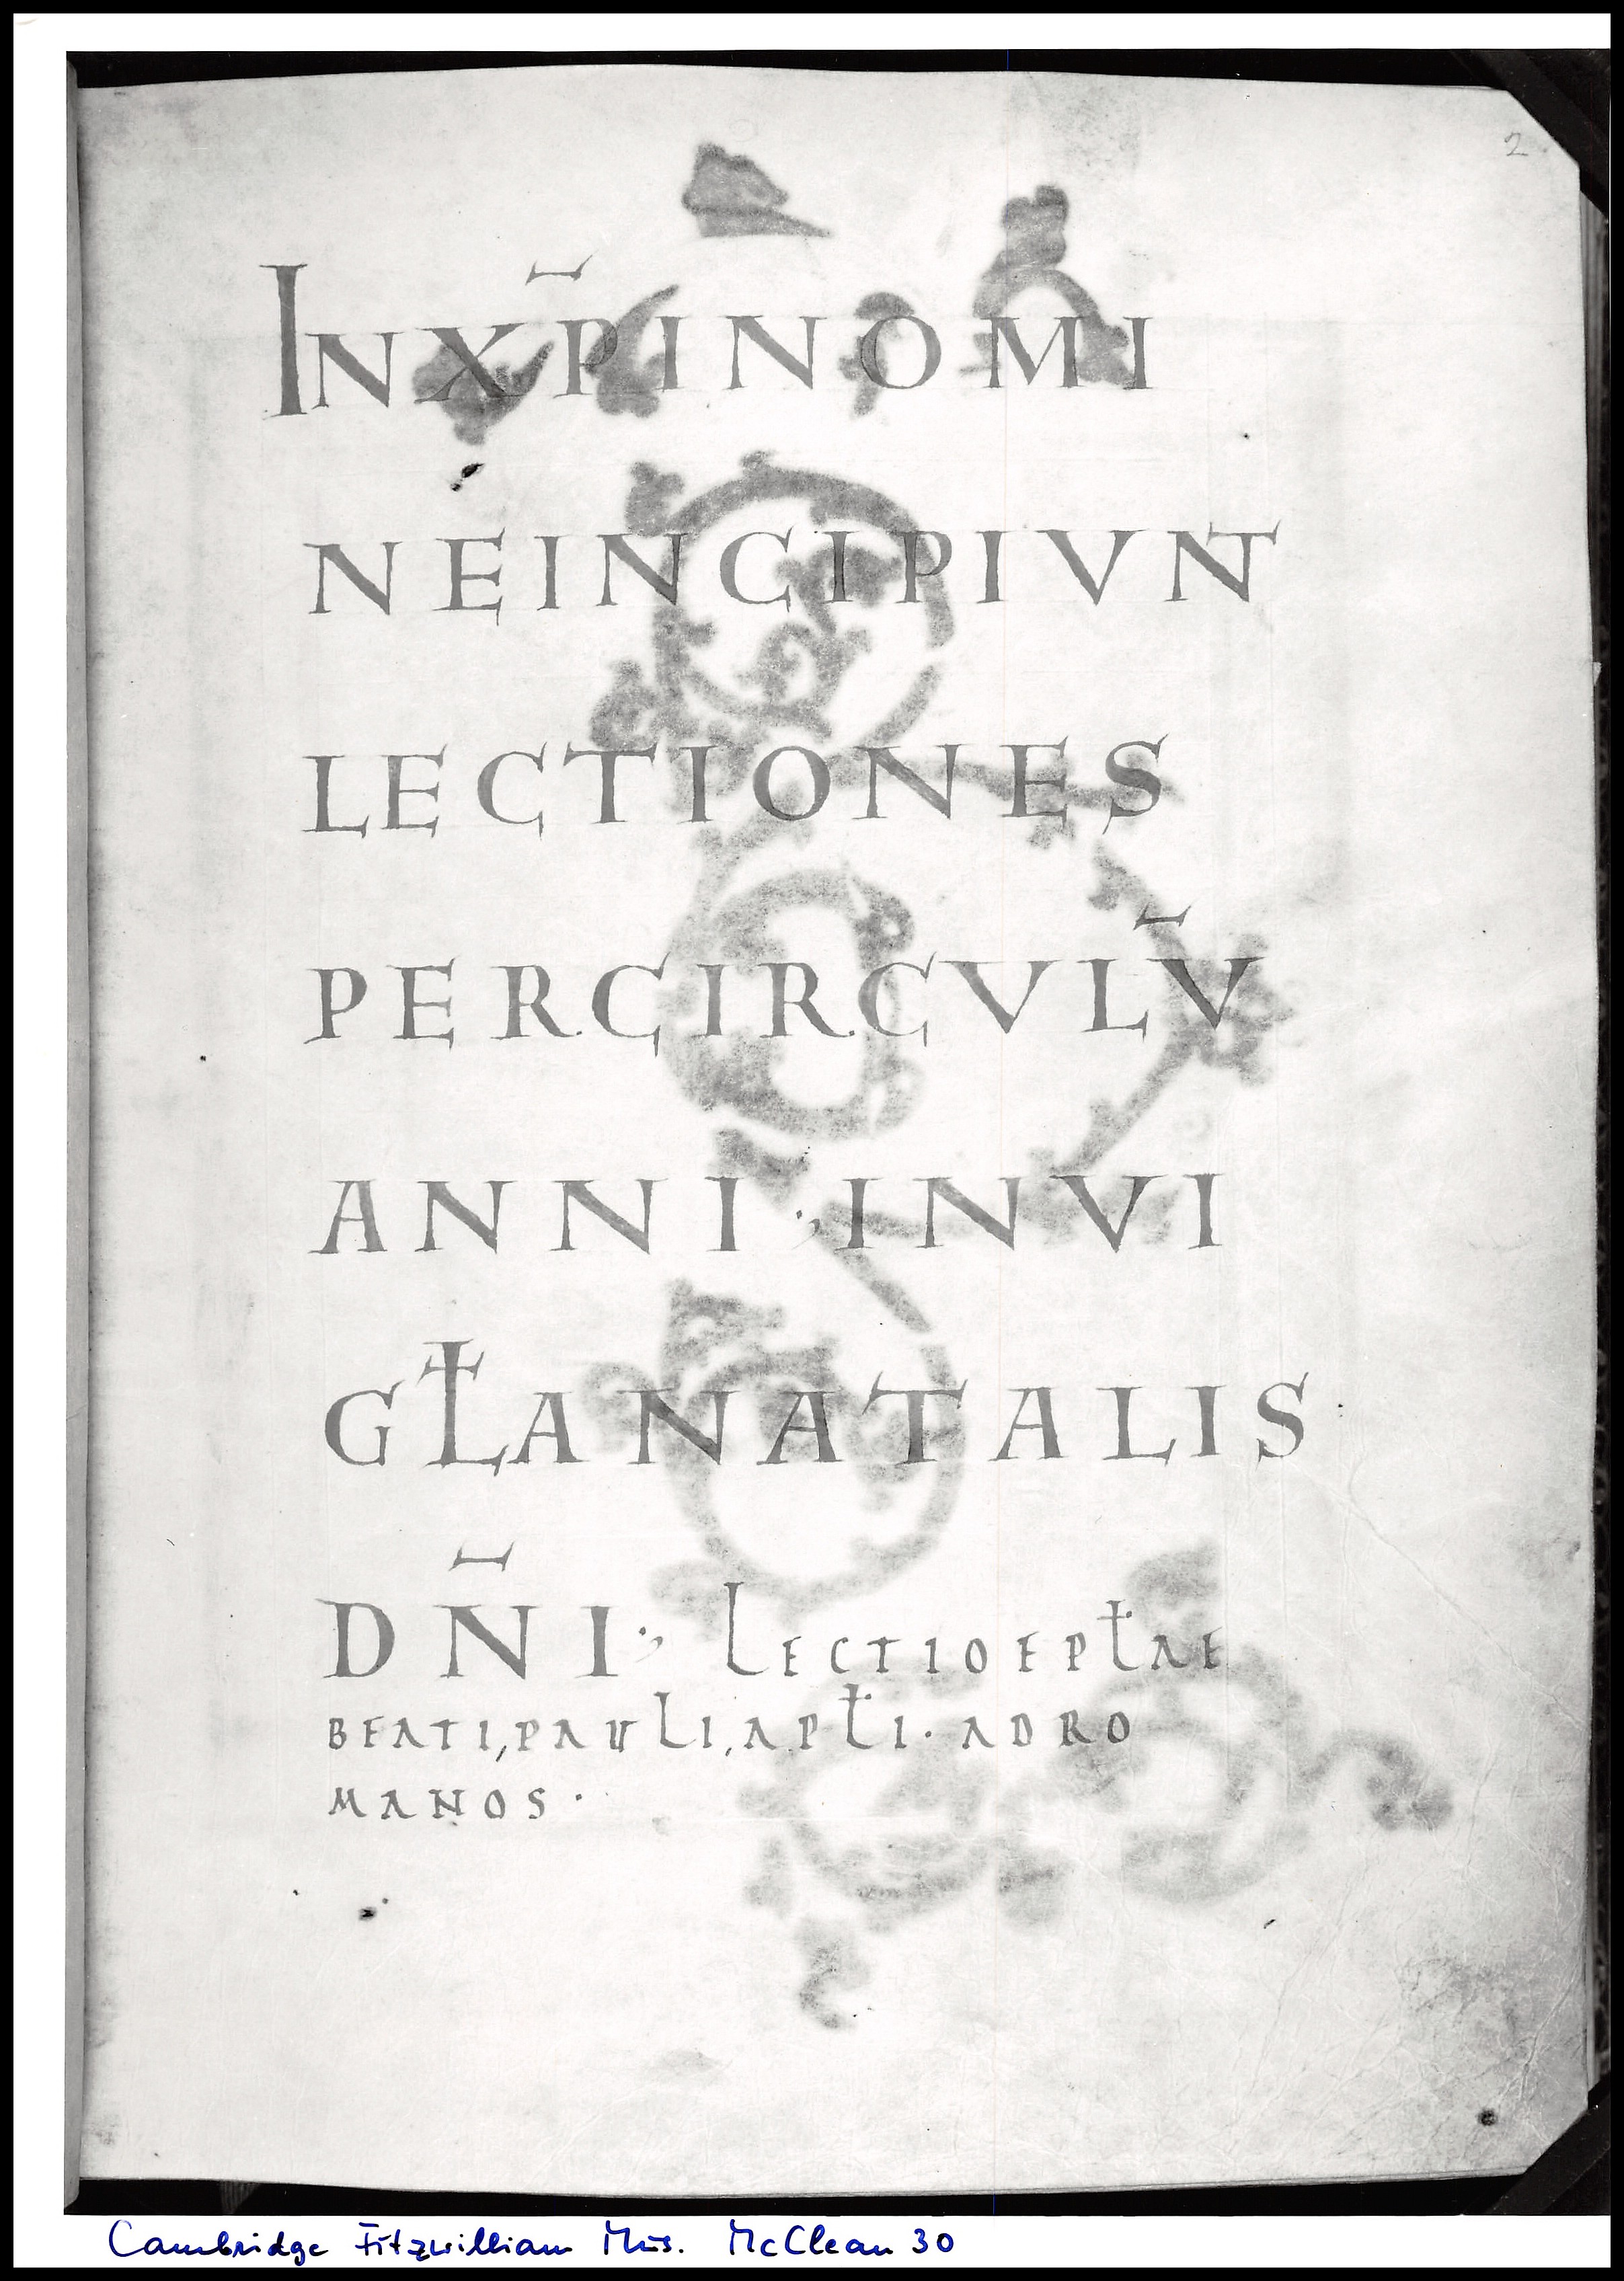 2
INXP̅INOMI
NEINCIPIVNT
LECTIONES
PERCIRCVLV̅
ANNI·, INVI
GŁANATALIS
DN̅I·, LECTIOEPŁAE
BEATI, PAULI, APŁI· ADRO
MANOS·
Cambridge Fitzwilliam Mus. McClean 30